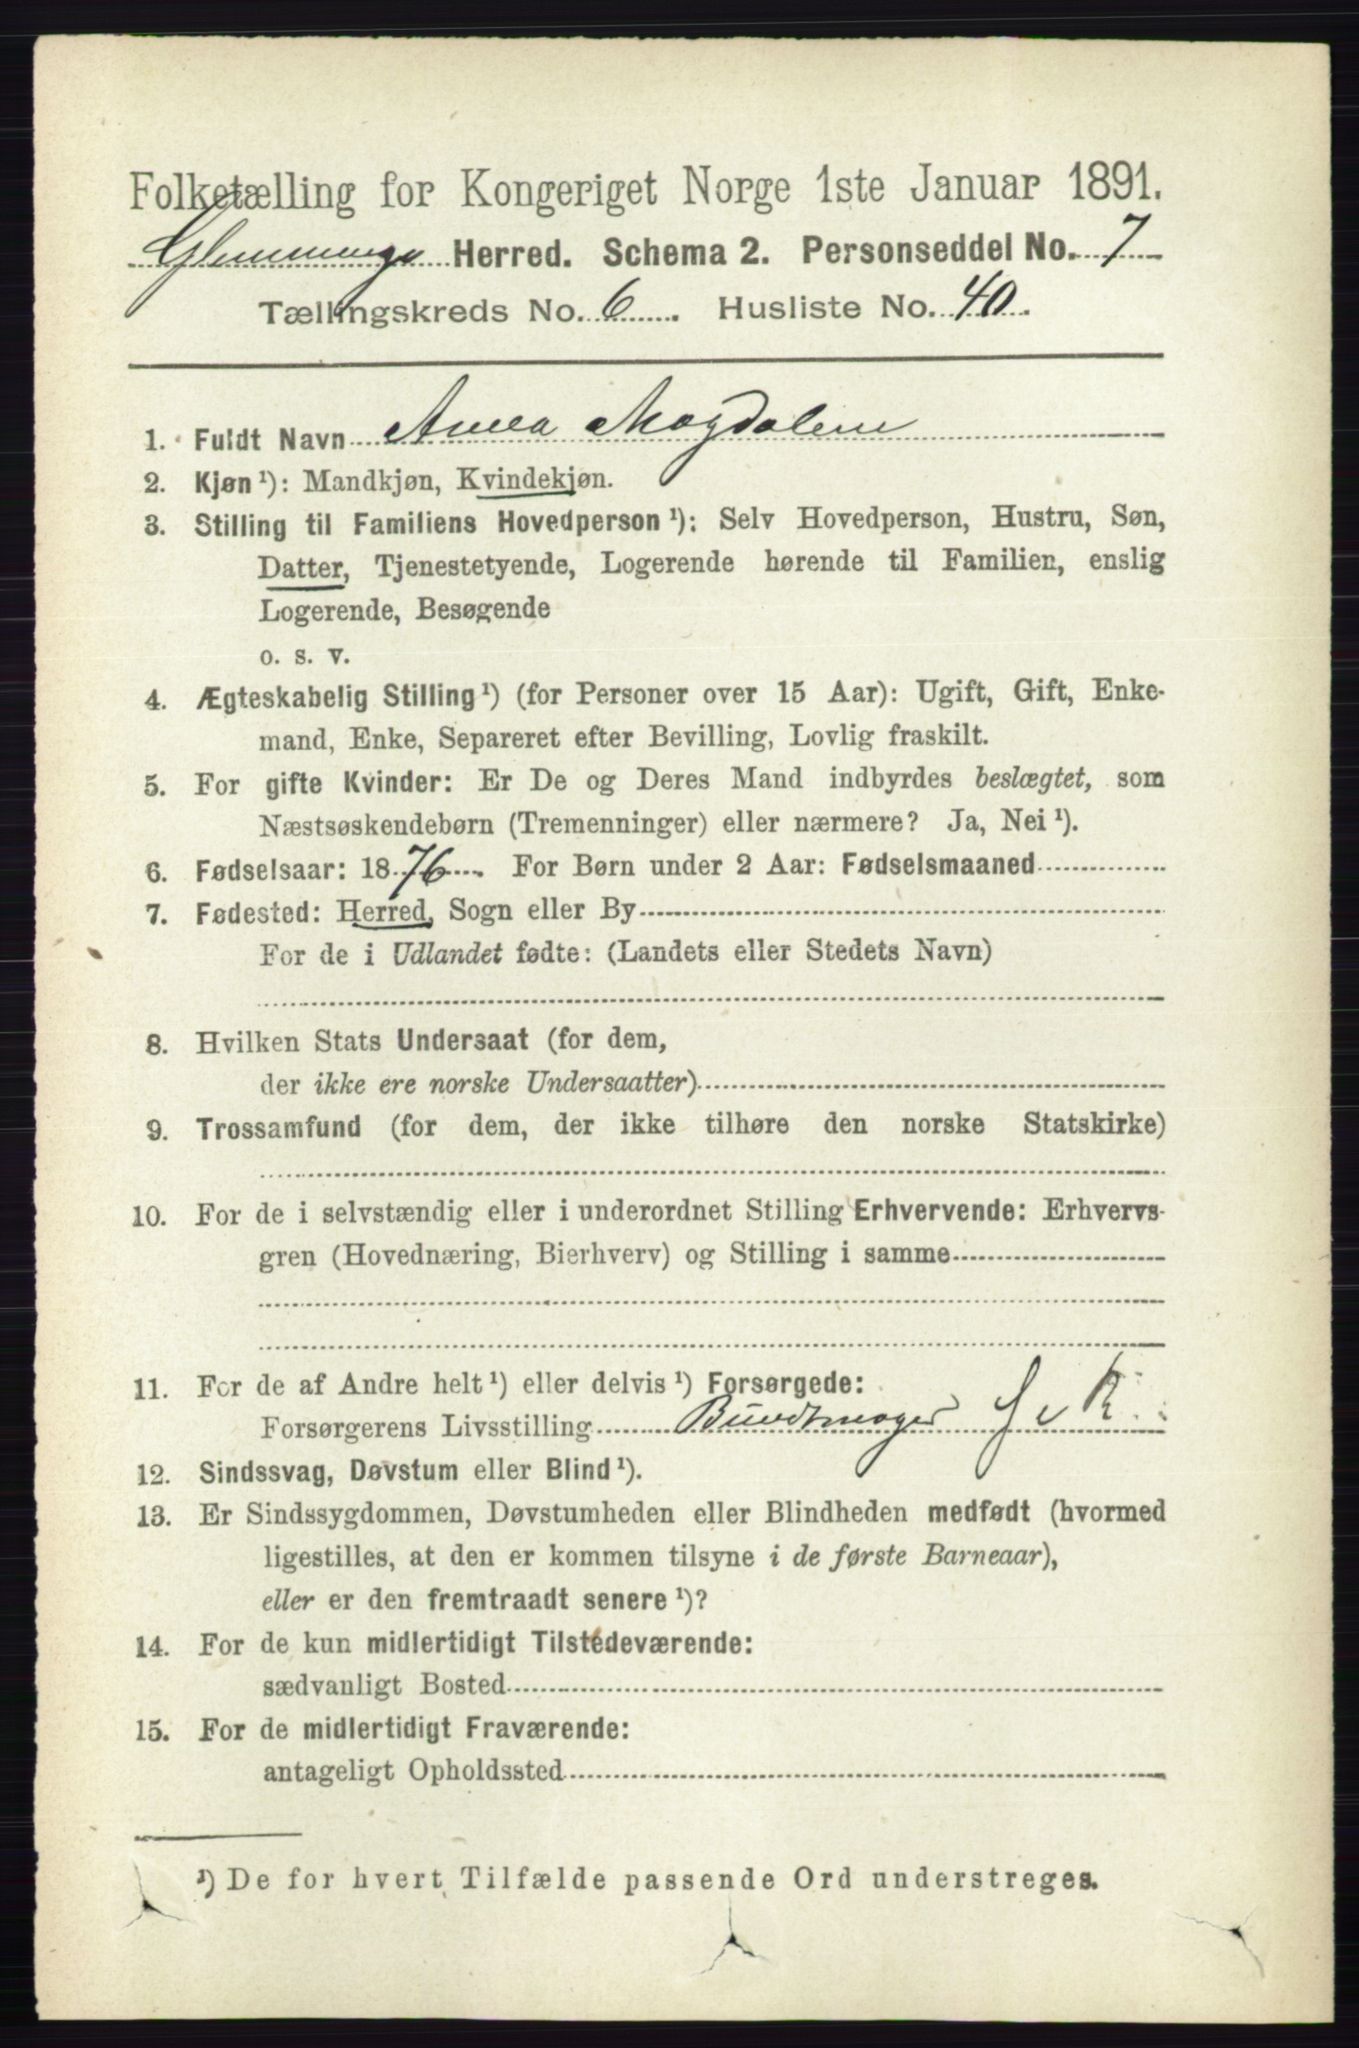 Folketælling for Kongeriget Norge 1ste Januar 1891.
Glemminge Herred. Schema 2. Personseddel No. 7
Tællingskreds No. 6. Husliste No. 40.
1. Fuldt Navn Anna Magdalene
2. Kjøn ¹): Mandkjøn, Kvindekjøn.
3. Stilling til Familiens Hovedperson ¹): Selv Hovedperson, Hustru, Søn,
Datter, Tjenestetyende, Logerende hørende til Familien, enslig
Logerende, Besøgende
o. s. v.
4. Ægteskabelig Stilling ¹) (for Personer over 15 Aar): Ugift, Gift, Enke-
mand, Enke, Separeret efter Bevilling, Lovlig fraskilt.
5. For gifte Kvinder: Er De og Deres Mand indbyrdes beslægtet, som
Næstsøskendebørn (Tremenninger) eller nærmere? Ja, Nei ¹).
6. Fødselsaar: 1876. For Børn under 2 Aar: Fødselsmaaned
7. Fødested: Herred, Sogn eller By
For de i Udlandet fødte: (Landets eller Stedets Navn)
8. Hvilken Stats Undersaat (for dem,
der ikke ere norske Undersaatter)
9. Trossamfund (for dem, der ikke tilhøre den norske Statskirke)
10. For de i selvstændig eller i underordnet Stilling Erhvervende: Erhvervs-
gren (Hovednæring, Bierhverv) og Stilling i samme
11. For de af Andre helt ¹) eller delvis ¹) Forsørgede:
Forsørgerens Livsstilling Bundtmager
12. Sindssvag, Døvstum eller Blind ¹).
13. Er Sindssygdommen, Døvstumheden eller Blindheden medfødt (hvormed
ligestilles, at den er kommen tilsyne i de første Barneaar),
eller er den fremtraadt senere ¹)?
14. For de kun midlertidigt Tilstedeværende:
sædvanligt Bosted
15. For de midlertidigt Fraværende:
antageligt Opholdssted
¹) De for hvert Tilfælde passende Ord understreges.